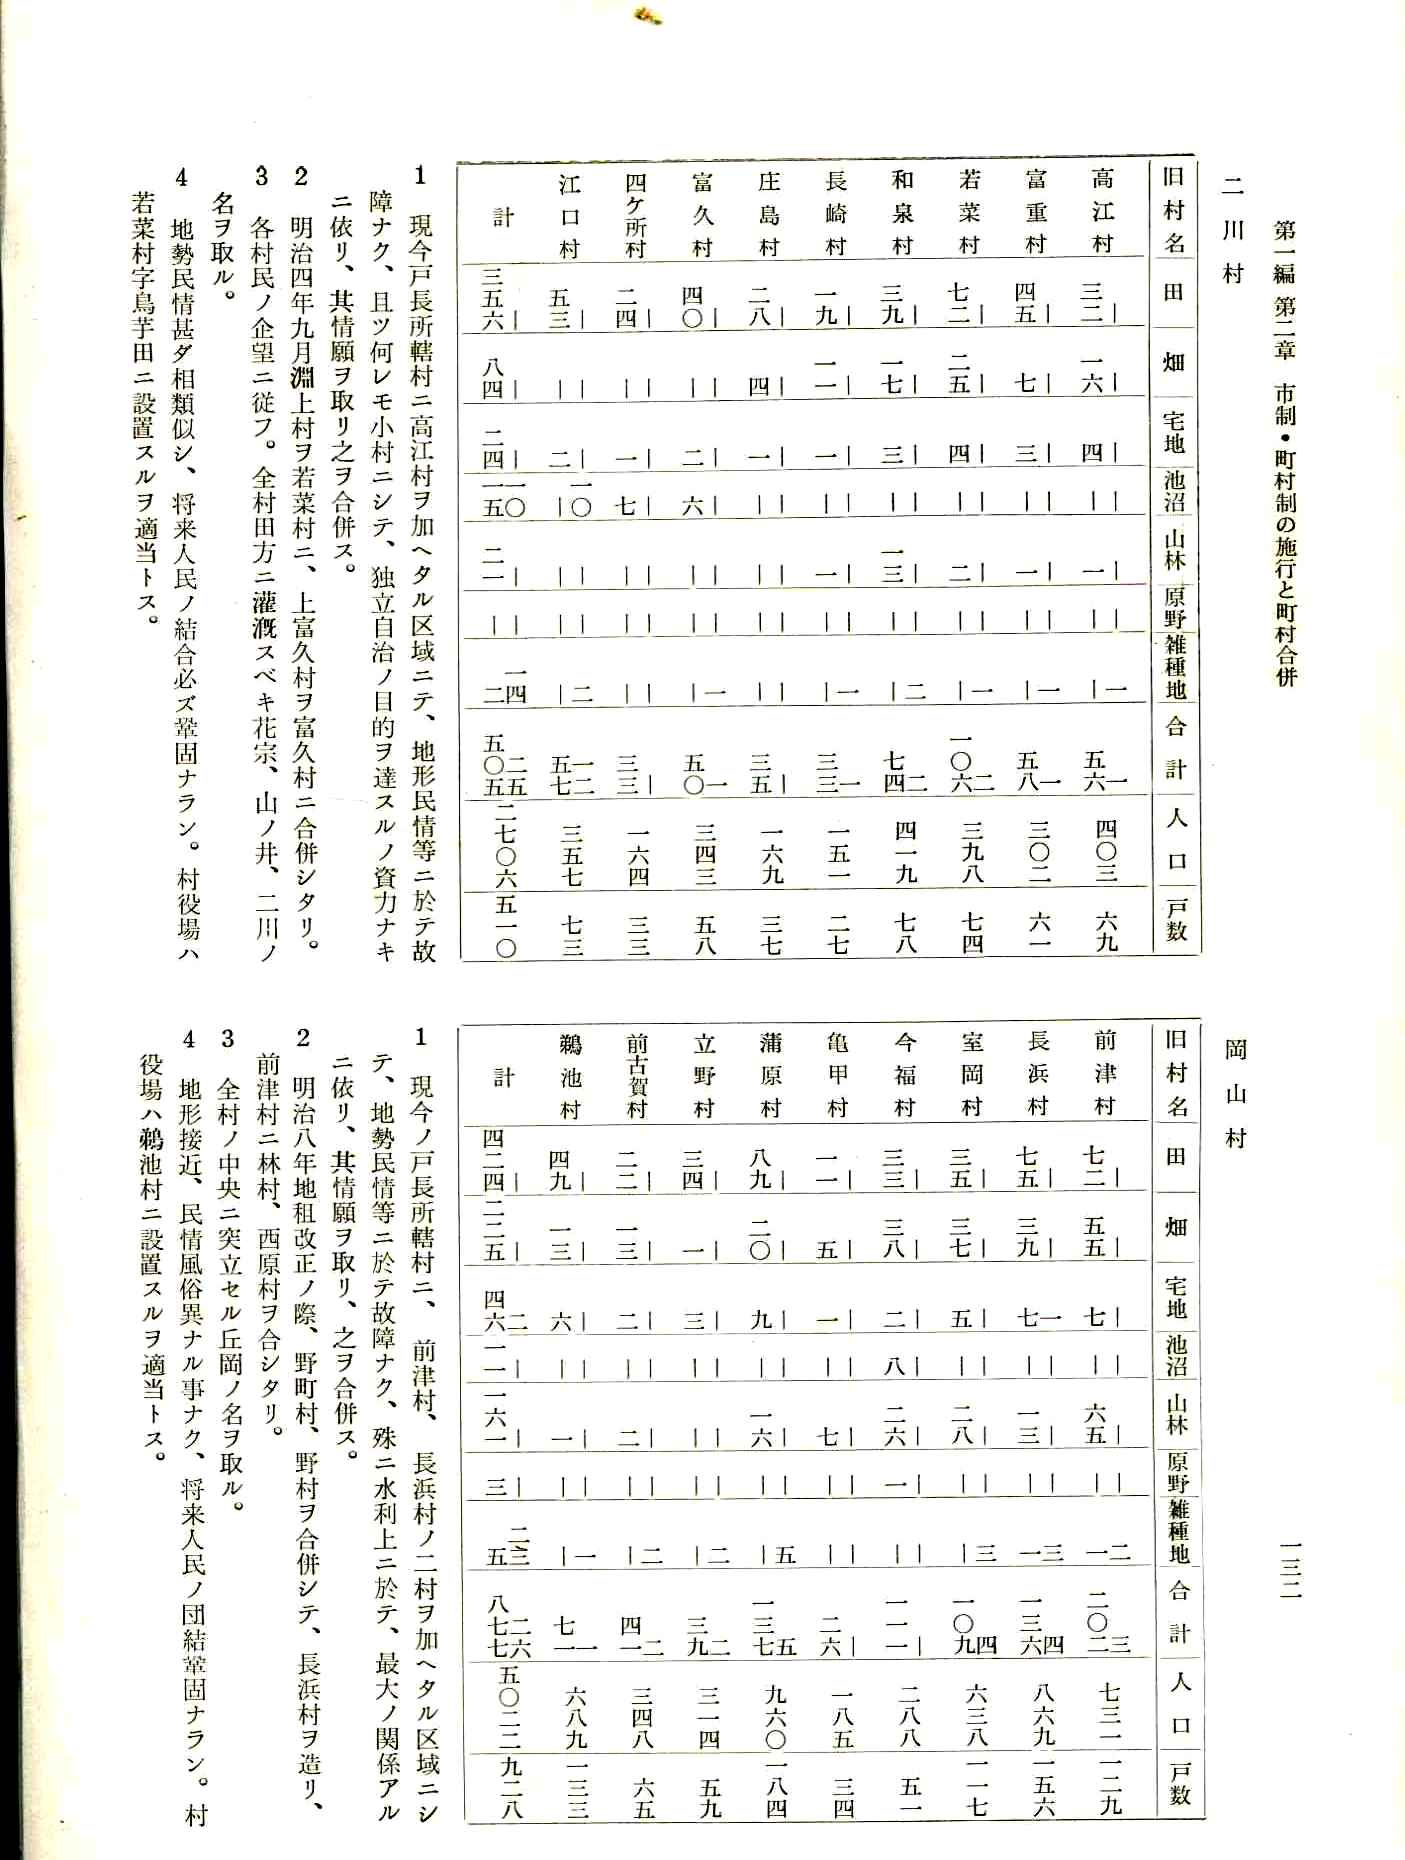 第一編 第二章 市制・町村制の施行と町村合併
一三二
二川村
旧村名 田 畑 宅地 池沼 山林 原野 雑種地 合計 人口 戸数
高江村 三二｜ 一六｜ 四｜ ｜｜ 一｜ ｜｜ ｜一 五六 一 四〇三 六九
富重村 四五｜ 七｜ 三｜ ｜｜ 一｜ ｜｜ ｜一 五八 一 三〇二 六一
若菜村 七二｜ 二五｜ 四｜ ｜｜ 二｜ ｜｜ ｜一 一〇六 二 三九八 七四
和泉村 三九｜ 一七｜ 三｜ ｜｜ 一三｜ ｜｜ ｜二 七四 二 四一九 七八
長崎村 一九｜ 一一｜ 一｜ ｜｜ 一｜ ｜｜ ｜一 三三 一 一五一 二七
庄島村 二八｜ 四｜ 一｜ ｜｜ ｜｜ ｜｜ ｜｜ 三五｜ 一六九 三七
富久村 四〇｜ ｜｜ 二｜ 六｜ ｜｜ ｜｜ ｜一 五〇 一 三四三 五八
四ケ所村 二四｜ ｜｜ 一｜ 七｜ ｜｜ ｜｜ ｜｜ 三三｜ 一六四 三三
江口村 五三｜ ｜｜ 二｜ ｜一〇 ｜｜ ｜｜ ｜二 五七 一二 三五七 七三
計 三五六｜ 八四｜ 二四｜ 一五 一〇 二一｜ ｜｜ 二 一四 五〇五 二五 二七〇六 五一〇
1 現今戸長所轄村ニ高江村ヲ加ヘタル区域ニテ、地形民情等ニ於テ故
障ナク、且ツ何レモ小村ニシテ、独立自治ノ目的ヲ達スルノ資力ナキ
ニ依リ、其情願ヲ取リ之ヲ合併ス。
2 明治四年九月淵上村ヲ若菜村ニ、上富久村ヲ富久村ニ合併シタリ。
3 各村民ノ企望ニ従フ。全村田方ニ灌漑スベキ花宗、山ノ井、二川ノ
名ヲ取ル。
4 地勢民情甚ダ相類似シ、将来人民ノ結合必ズ鞏固ナラン。村役場ハ
若菜村字鳥芋田ニ設置スルヲ適当トス。
岡山村
旧村名 田 畑 宅地 池沼 山林 原野 雑種地 合計 人口 戸数
前津村 七二｜ 五五｜ 七｜ ｜｜ 六五｜ ｜｜ 一 二 二〇二 三 七三一 一二九
長浜村 七五｜ 三九｜ 七 一 ｜｜ 一三｜ ｜｜ 一 三 一三六 四 八六九 一五六
室岡村 三五｜ 三七｜ 五｜ ｜｜ 二八｜ ｜｜ ｜三 一〇九 四 六三八 一一七
今福村 三三｜ 三八｜ 二｜ 八｜ 二六｜ 一｜ ｜｜ 一一一｜ 二八八 五一
亀甲村 一一｜ 五｜ 一｜ ｜｜ 七｜ ｜｜ ｜｜ 二六｜ 一八五 三四
蒲原村 八九｜ 二〇｜ 九｜ ｜｜ 一六｜ ｜｜ ｜五 一三七 五 九六〇 一八四
立野村 三四｜ 一｜ 三｜ ｜｜ ｜｜ ｜｜ ｜二 三九 二 三一四 五九
前古賀村 二二｜ 一三｜ 二｜ ｜｜ 二｜ ｜｜ ｜二 四一 二 三四八 六五
鵜池村 四九｜ 一三｜ 六｜ ｜｜ 一｜ ｜｜ ｜一 七一 一 六八九 一三三
計 四二四｜ 二二五｜ 四六 二 一一｜ 一六一｜ 三｜ 五 二三 八七七 二六 五〇二二 九二八
1 現今ノ戸長所轄村ニ、前津村、長浜村ノ二村ヲ加ヘタル区域ニシ
テ、地勢民情等ニ於テ故障ナク、殊ニ水利上ニ於テ、最大ノ関係アル
ニ依リ、其情願ヲ取リ、之ヲ合併ス。
2 明治八年地租改正ノ際、野町村、野村ヲ合併シテ、長浜村ヲ造リ、
前津村ニ林村、西原村ヲ合シタリ。
3 全村ノ中央ニ突立セル丘岡ノ名ヲ取ル。
4 地形接近、民情風俗異ナル事ナク、将来人民ノ団結鞏固ナラン。村
役場ハ鵜池村ニ設置スルヲ適当トス。